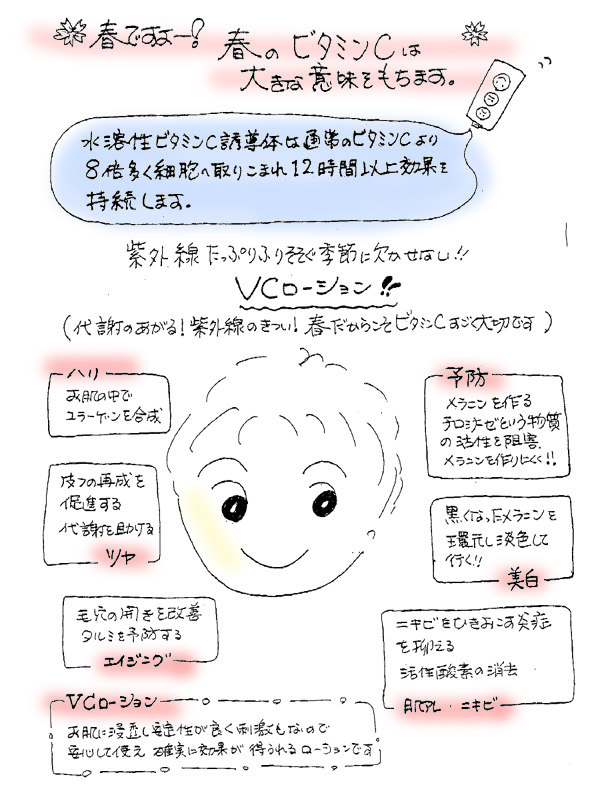 春ですよー!
春のビタミンCは
大きな意味をもちます。
水溶性ビタミンC誘導体は通常のビタミンCより
8倍多く細胞へ取りこまれ12時間以上効果を
持続します。
紫外線たっぷりふりそそぐ季節に欠かせない!!
VCローション!!
(代謝のあがる!紫外線のきつい!春だからこそビタミンCすごく大切です)
ハリ
お肌の中で
コラーゲンを合成
予防
メラニンを作る
チロシナーゼという物質
の活性を阻害
メラニンを作りにくく!!
皮フの再成を
促進する
代謝を助ける
ツヤ
黒くなったメラニンを
還元し淡色して
行く!!
美白
毛穴の開きを改善
タルミを予防する
エイジング
ニキビをひきおこす炎症
を抑える
活性酸素の消去
肌アレ・ニキビ
VCローション
お肌に浸透し安定性が良く刺激もないので
安心して使え 確実に効果が得られるローションです